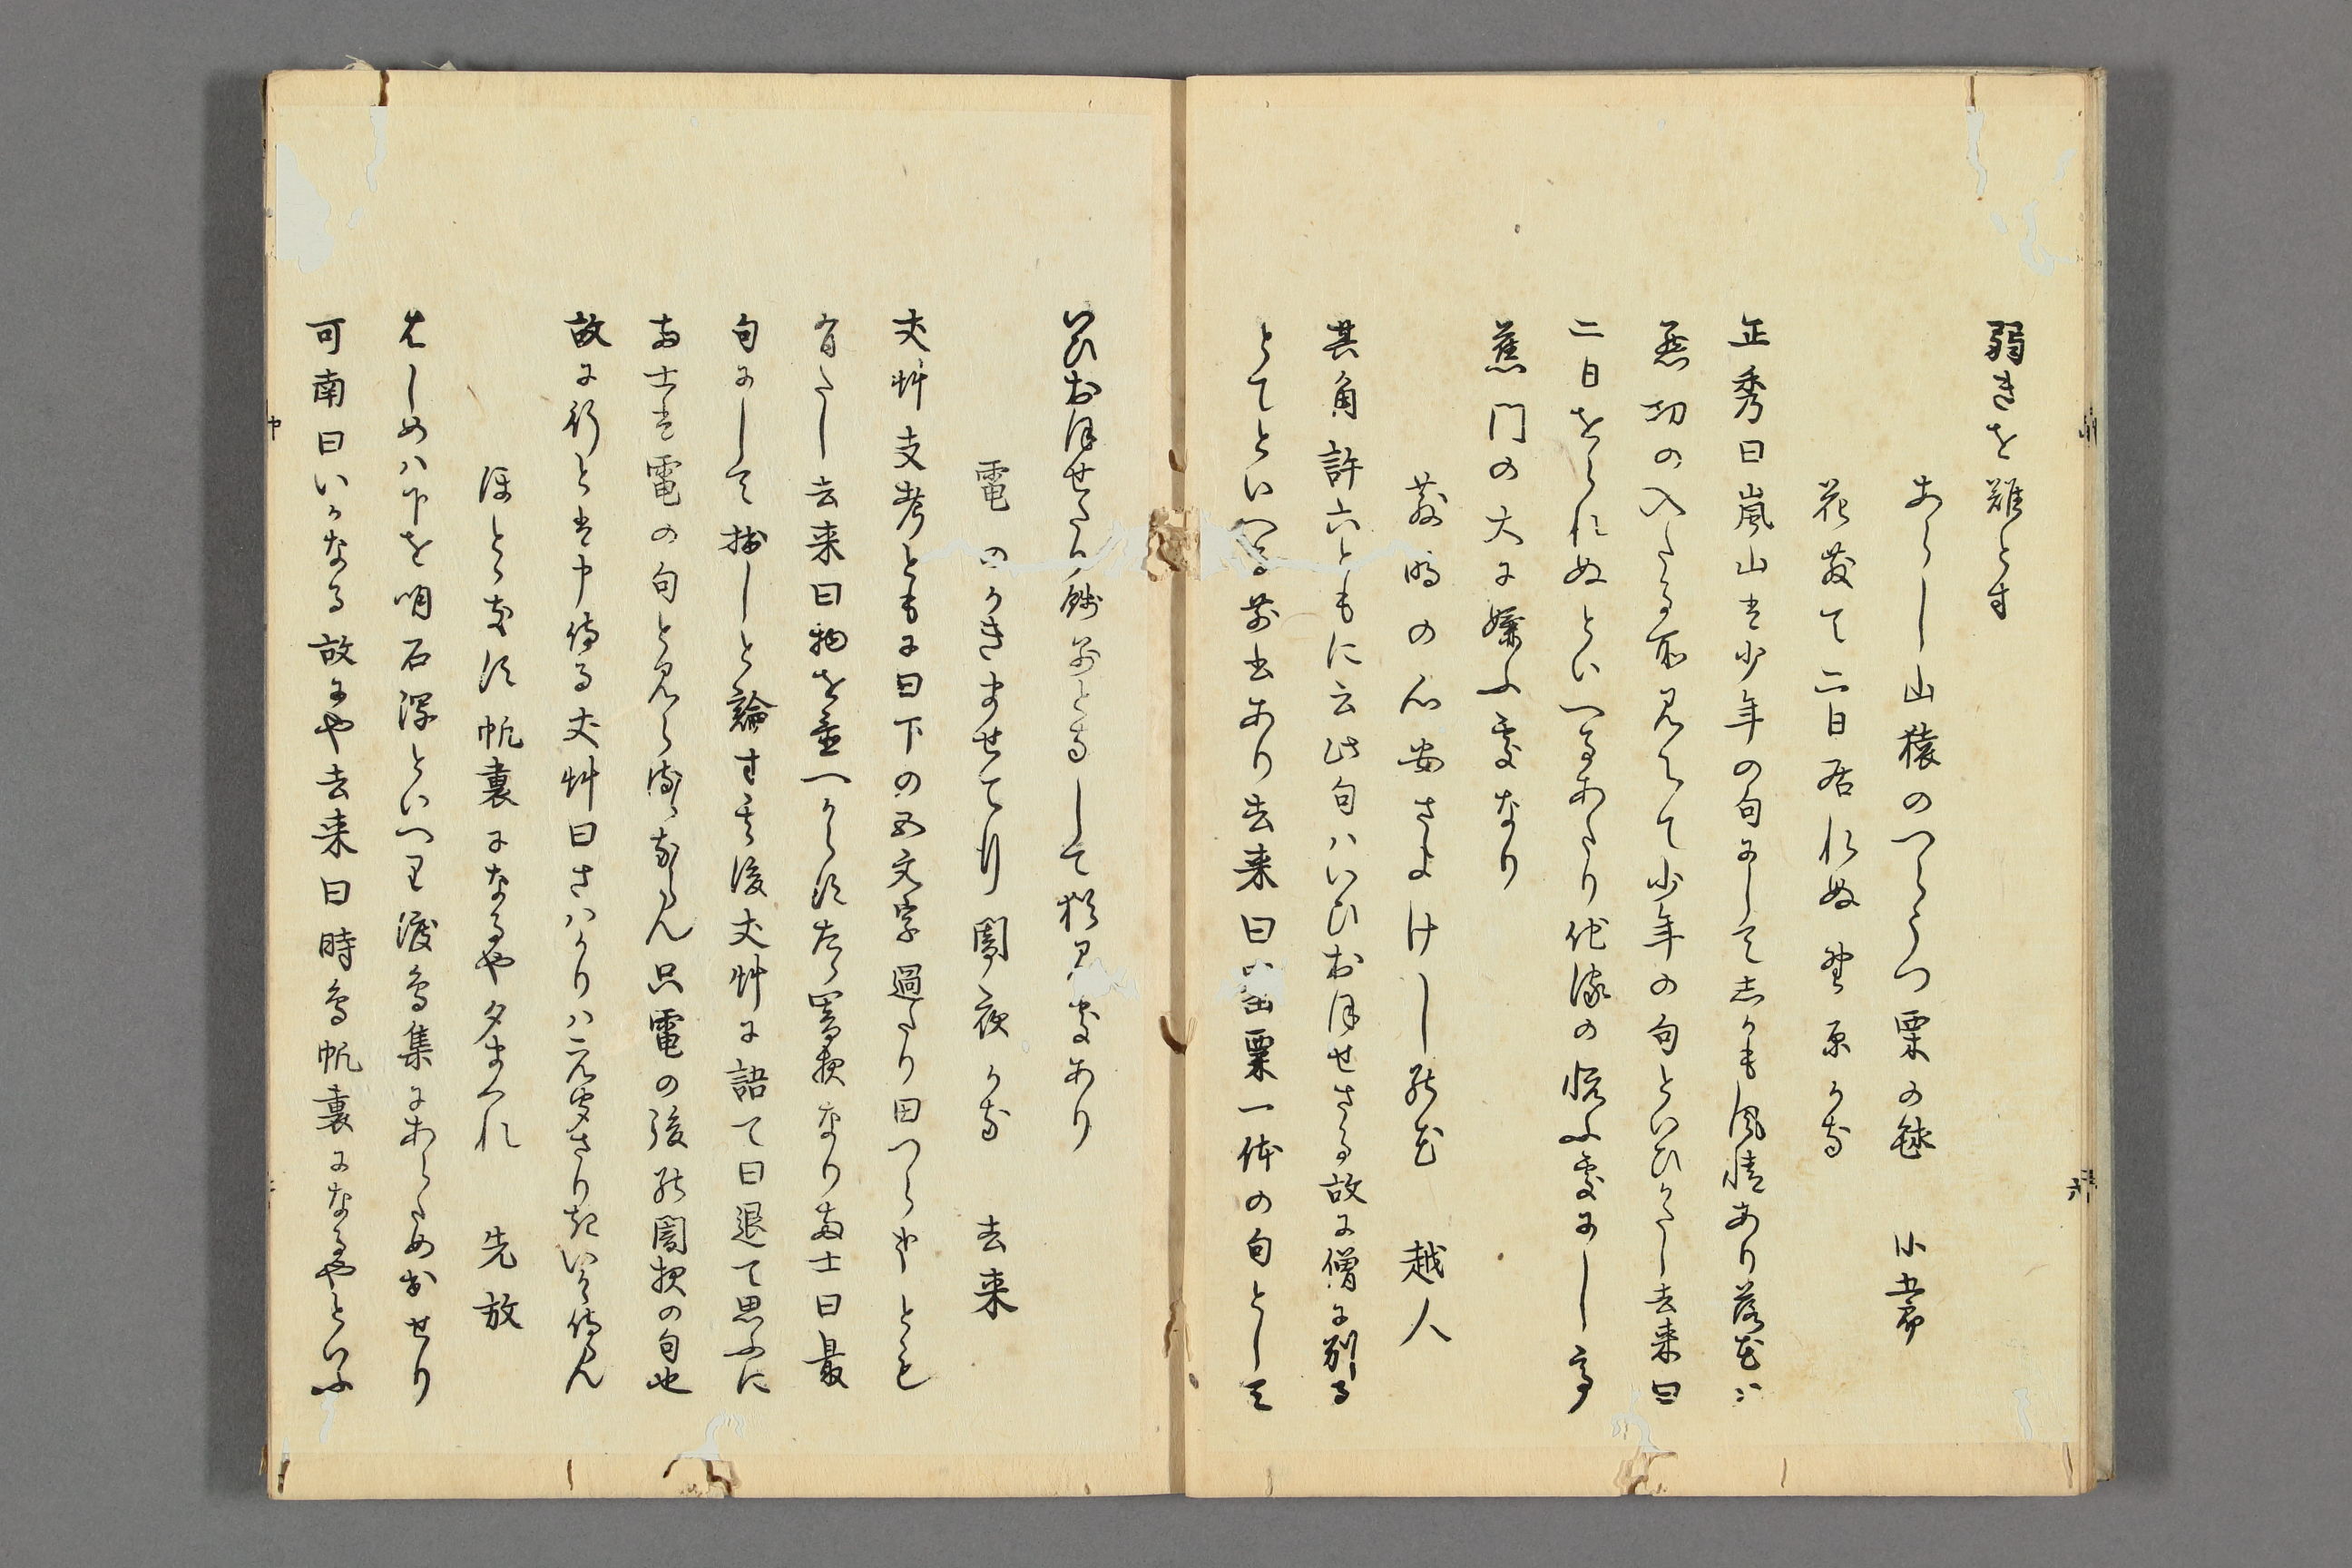 弱きを難とす
あらし山猿のつらうつ栗の毬　小五郎
花散て二日居れぬ野原かな
正秀曰嵐山は少年の句にしてしかも風情あり落花ハ
悪功の入たる所見えて少年の句といひかたし去来曰
二日をられぬといへるあたり他流の悦ふ処にして
蕉門の大に嫌ふ処なり
散時の心安さよけしの花　越人
其角許六ともに云此句ハいひおほせさる故に僧に別る
とてといへる前書あり去来曰罌粟一体の句として
いひおほせたり餞別となして猶見処あり
電のかきませてり闇夜かな　去来
丈艸支考ともに曰下の五文字過たり田つらともと
有たし去来曰物を置へからすたゝ闇夜なり両士曰最
句にして拙しと論す其後丈艸に語て曰退て思ふに
両士は電の句と見らるゝならん只電の後の闇夜の句也
故に行とは申侍る丈艸曰さハかりハ心つかさりきいかゝ侍らん
ほとゝきす帆裏になるや夕まくれ　先放
はしめハ下を明石潟といへり渡鳥集にあらためおせり
可南曰いかなる故にや去来曰時鳥帆裏になるやといふ